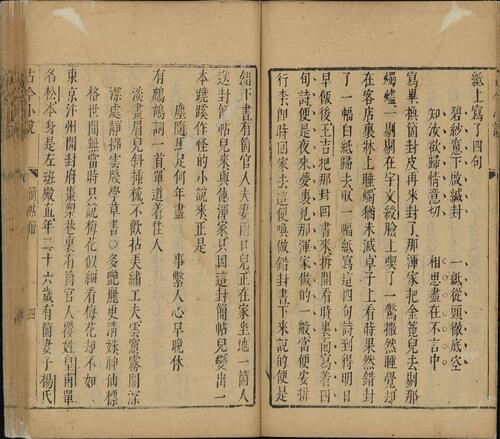 紙上寫了四句
碧紗窓下啟緘封　一紙從頭徹底空
知汝欲歸情意切　相思盡在不言中
寫畢換箇封皮再來封了那渾家把金篦兒去剔那
燭燼一剔剔在宇文綬臉上喫了一驚撒然睡覺却
在客店裏牀上睡燭猶未滅卓子上看時果然錯封
了一幅白紙歸去取一幅紙寫這四句詩到得明日
早飯後王吉把那封回書來拆開看時裏面寫着四
句詩便是夜來夢裏見那渾家做的一般當便安排
行李即時回家去這便喚做錯封書下來說的便是
錯下書有箇官人夫妻兩口兒正在家坐地一箇人
送封簡帖兒來與他渾家只因這封簡帖兒變出一
本蹺蹊作怪的小說來正是
塵隨馬足何年盡　事繫人心早晚休
有鷓鴣詞一首單道着佳人
淡畫眉兒斜插梳不歡拈弄繡工夫雲窓霧閣深
深處靜拂雲牋學草書○多艷麗更清姝神仙標
格世間無當時只說梅花似細看梅花却不如
東京汴州開封府棗槊巷裏有箇官人覆姓皇甫單
名松本身是左班殿直年二十六歲有箇妻子楊氏
古今小說　簡帖僧　四